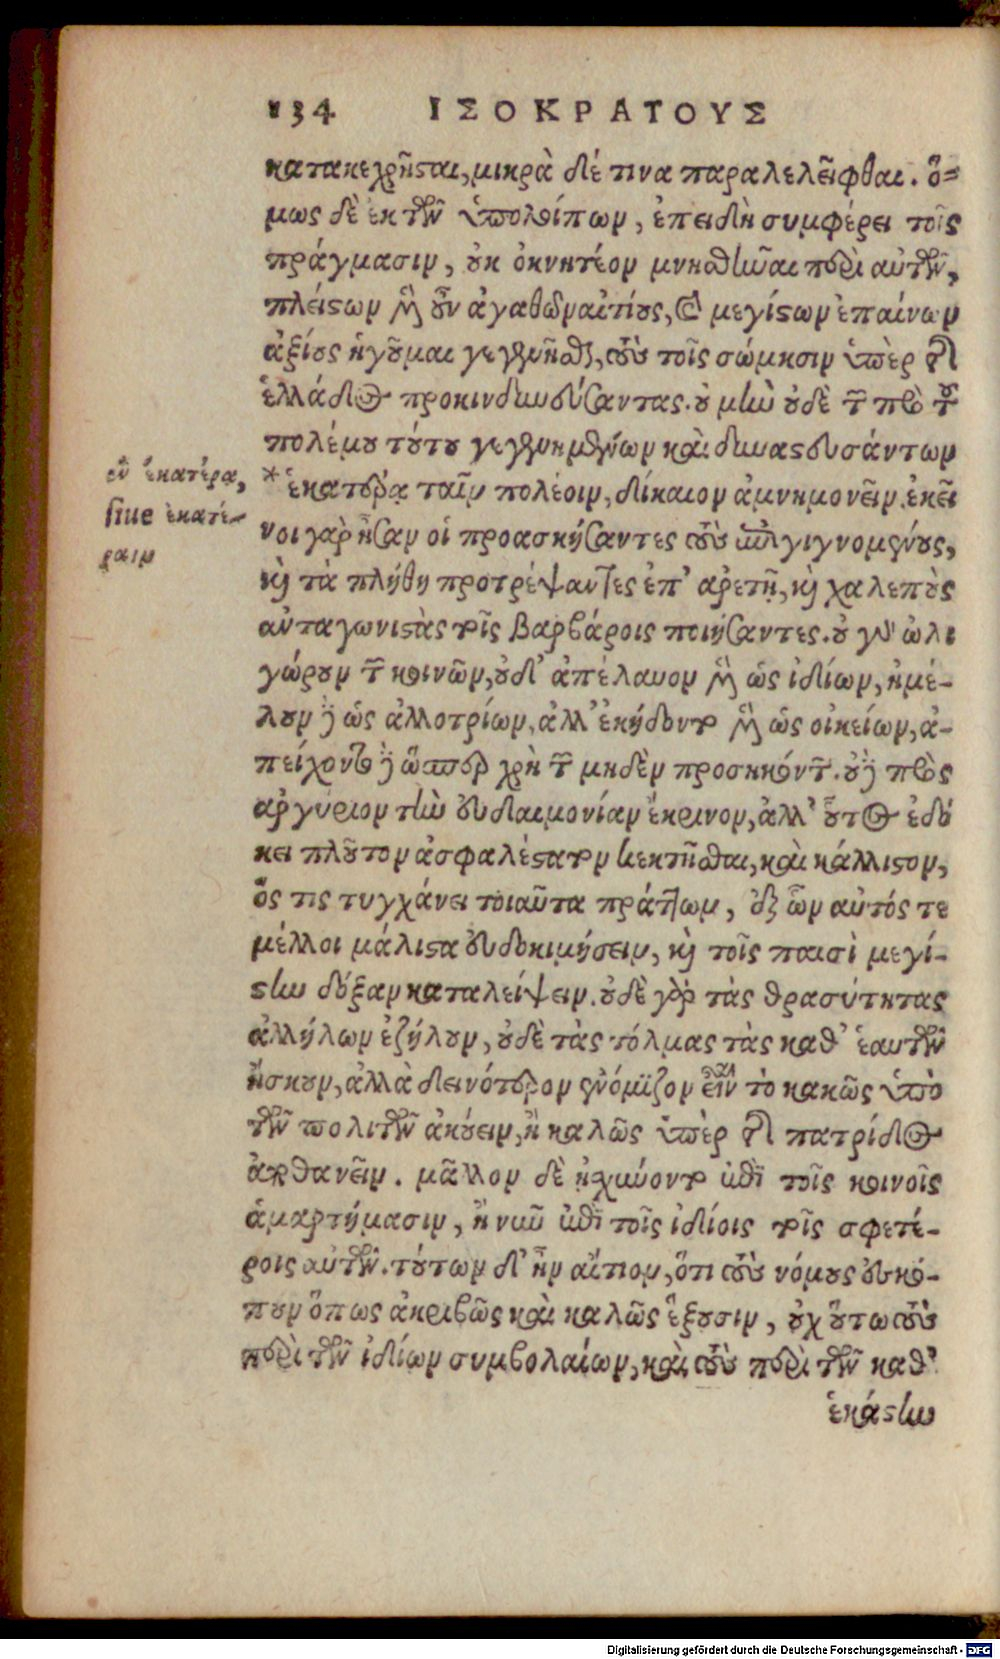 134 ΙΣΟΚΡΑΤΟΥΣ
κατακεχρῆσται, μικρὰ δέ τινα παραλελεῖφθαι. ὅ-
μως δὲ ἐκ τῶν ὑπολοίπων, ἐπειδὴ συμφέρει τοῖς
πράγμασιν, οὐκ ὀκνητέον μνησθῆναι περὶ αὐτῶν,
πλείστων μὲν οὖν ἀγαθῶν αἰτίους, καὶ μεγίστων ἐπαίνων
ἀξίους ἡγοῦμαι γεγενῆσθαι, τοὺς τοῖς σώμασιν ὑπὲρ τῆς
ἑλλάδος προκινδυνεύσαντας. οὐ μὴν οὐδὲ τῶν πρὸ τοῦ
πολέμου τούτου γεγενημένων καὶ δυναστευσάντων
* ἑκατέρᾳ ταῖν πολέοιν, δίκαιον ἀμνημονεῖν. ἐκεῖ
νοι γὰρ ἦσαν οἱ προασκήσαντες τοὺς ἐπιγιγνομένους,
καὶ τὰ πλήθη προτρέψαντες ἐπ' ἀρετῇ, καὶ χαλεποὺς
ἀνταγωνιστὰς τοῖς βαρβάροις ποιήσαντες. οὐ γὰρ ὠλι
γώρουν τῶν κοινῶν, οὐδ' ἀπέλαυον μὲν ὡς ἰδίων, ἠμέ-
λουν δὲ ὡς ἀλλοτρίων, ἀλλ' ἐκήδοντο μὲν ὡς οἰκείων, ἀ-
πείχοντο δὲ ὥσπερ χρὴ τῶν μηδὲν προσηκόντων. οὐδὲ πρὸς
ἀργύριον τὴν εὐδαιμονίαν ἔκρινον, ἀλλ' οὗτος ἐδό
κει πλοῦτον ἀσφαλέστατον κεκτῆσθαι, καὶ κάλλιστον,
ὅς τις τυγχάνει τοιαῦτα πράττων, ἐξ ὧν αὐτός τε
μέλλοι μάλιστα εὐδοκιμήσειν, καὶ τοῖς παισὶ μεγί-
στην δόξαν καταλείψειν. οὐδὲ γὰρ τὰς θρασύτητας
ἀλλήλων ἐζήλουν, οὐδὲ τὰς τόλμας τὰς καθ' ἑαυτῶν
ἤσκουν, ἀλλὰ δεινότερον ἐνόμιζον εἶναι τὸ κακῶς ὑπὸ
τῶν πολιτῶν ἀκούειν, ἢ καλῶς ὑπὲρ τῆς πατρίδος
ἀποθανεῖν. μᾶλλον δὲ ᾐσχύνοντο ἐπὶ τοῖς κοινοῖς
ἁμαρτήμασιν, ἢ νῦν ἐπὶ τοῖς ἰδίοις τοῖς σφετέ-
ροις αὐτῶν. τούτων δ' ἦν αἴτιον, ὅτι τοὺς νόμους ἐσκό-
πουν ὅπως ἀκριβῶς καὶ καλῶς ἕξουσιν, οὐχ οὕτω τοὺς
περὶ τῶν ἰδίων συμβολαίων, καὶ τοὺς περὶ τῶν καθ'
ἑκάστην
ἐν ἑκατέρᾳ,
siue ἑκατέ-
ραιν
Digitalisierung gefördert durch die Deutsche Forschungsgemeinschaft - DFG